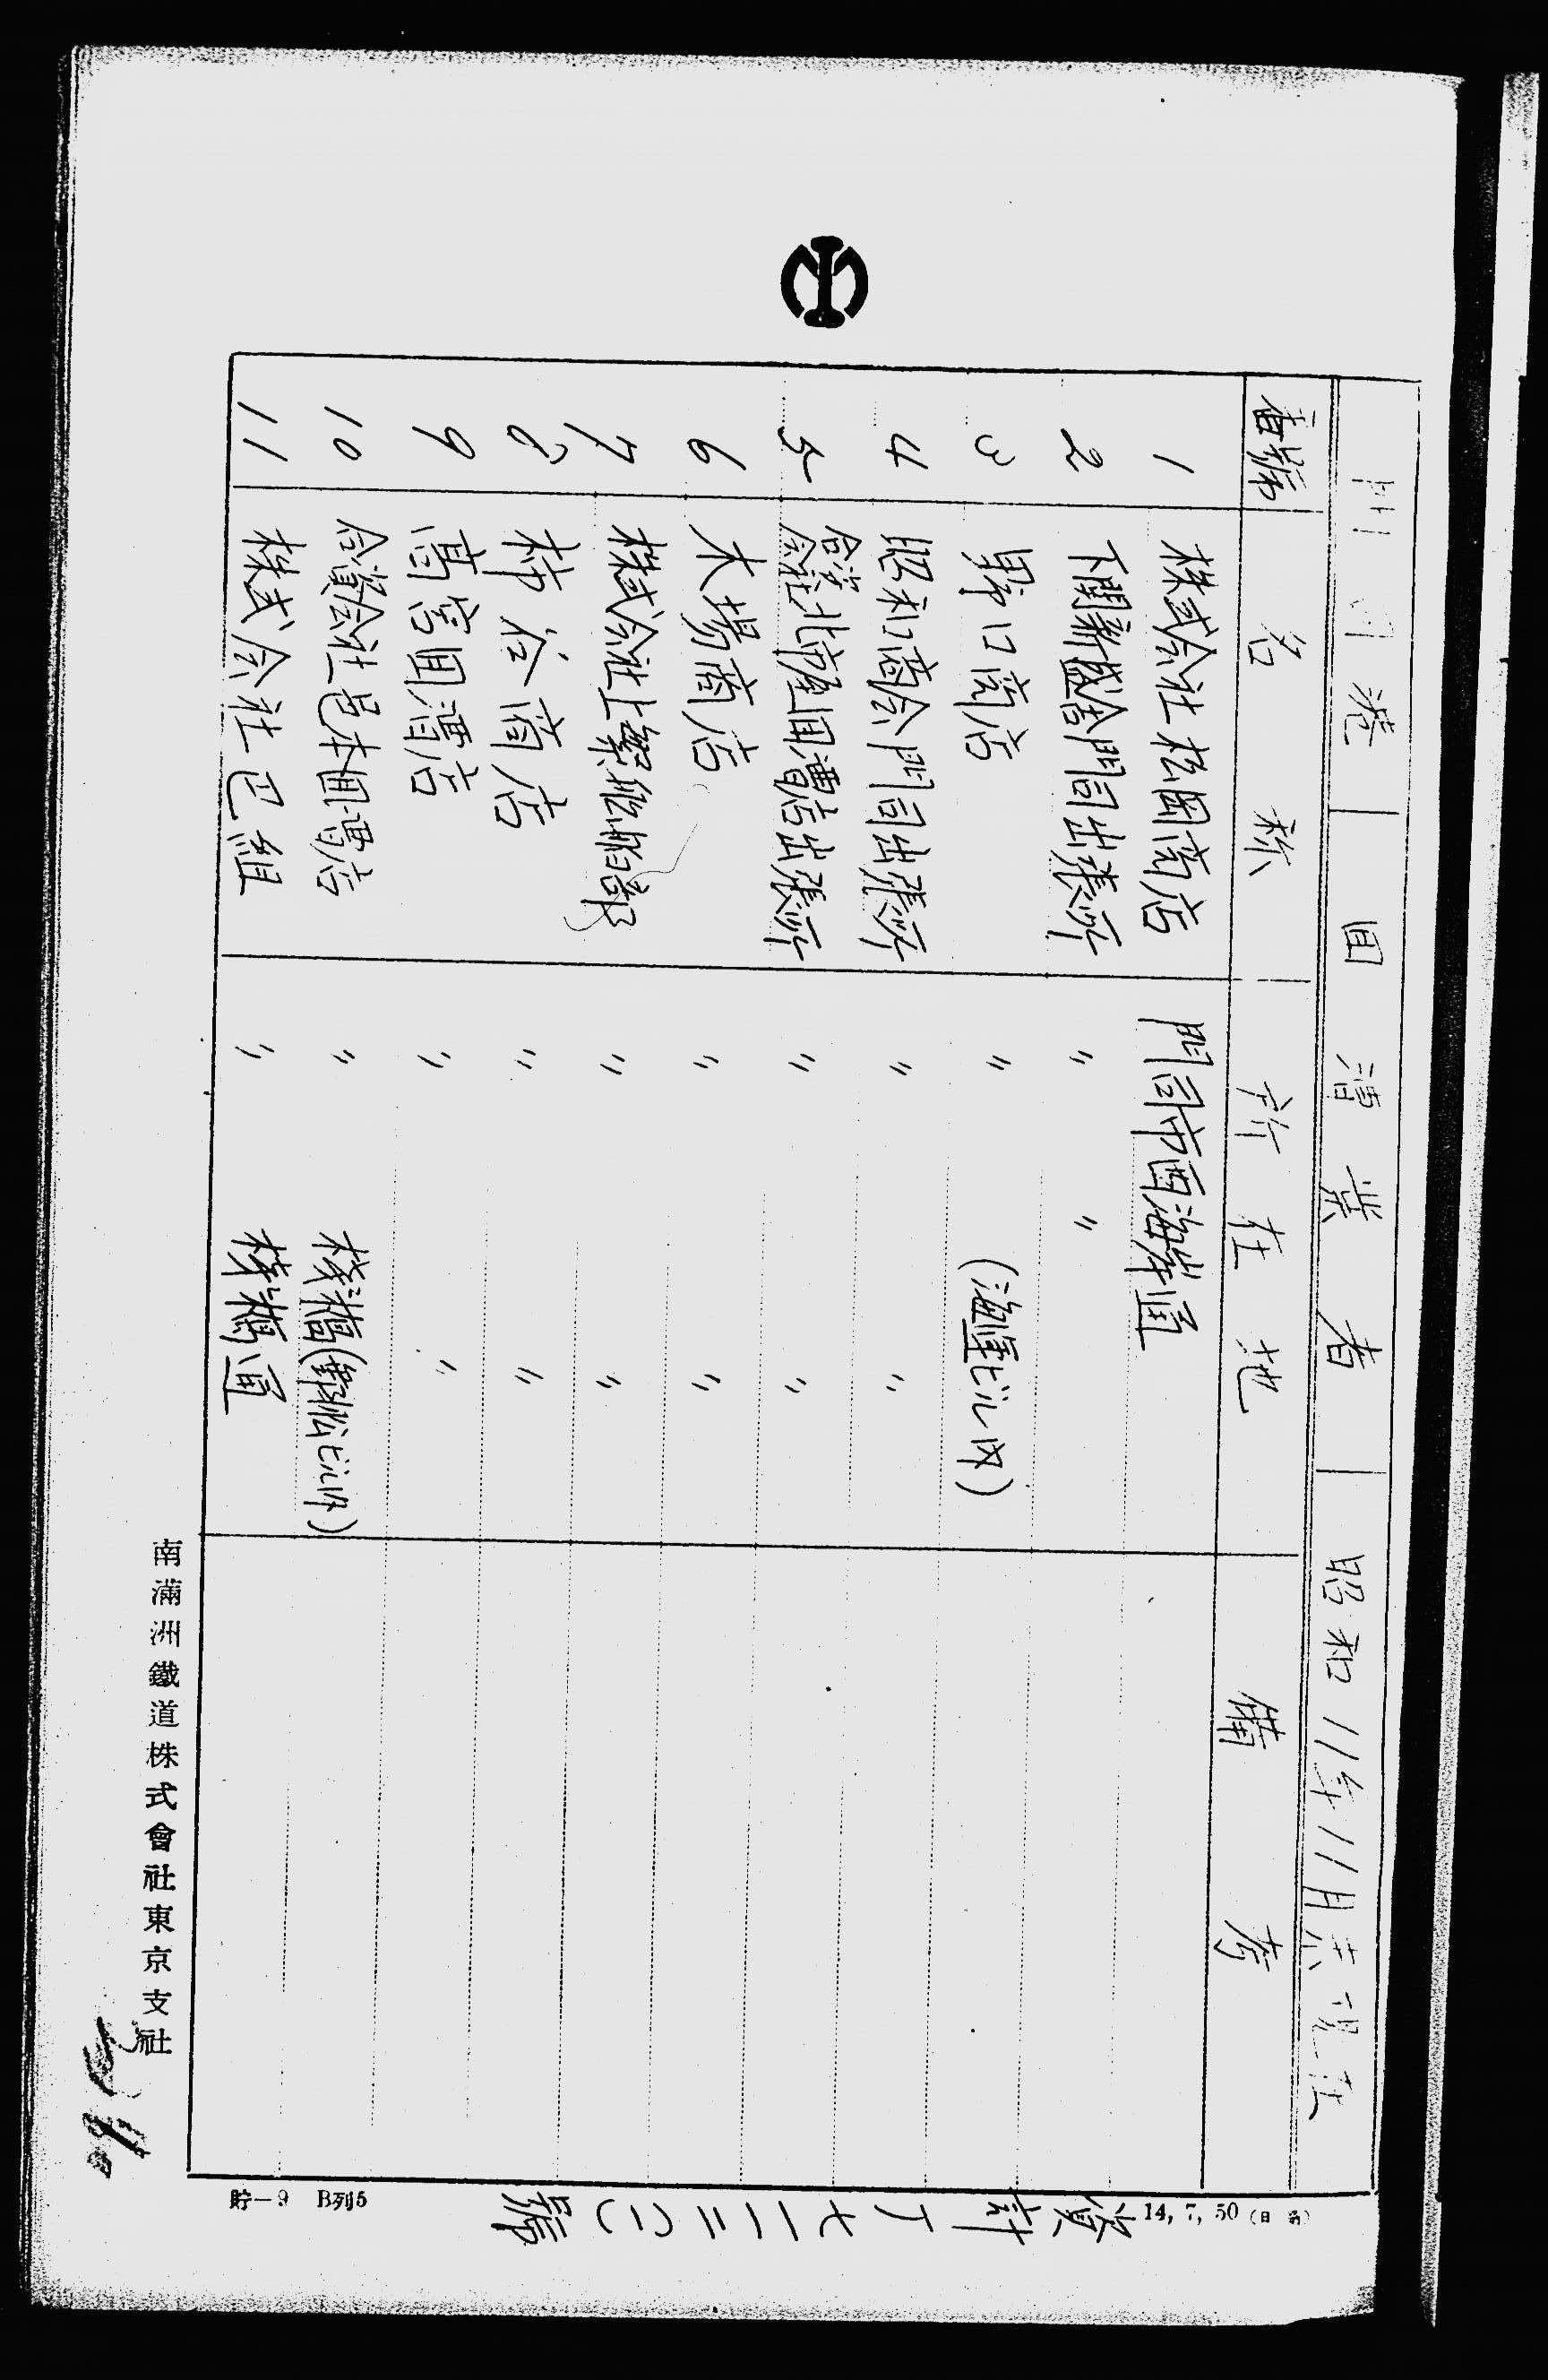 門司港 回漕業者 昭和11年11月末現在
番號 名称 所在地 備考
1 株式会社松岡商店 門司市西海岸通
2 下關新盛舎門司出張所 〃 〃
3 野口商店 〃 (海運ビル内)
4 昭和商会門司出張所 〃 〃
5 合資会社北席回漕店出張所 〃 〃
6 大場商店 〃 〃
7 株式会社上組 〃 〃
8 柿谷商店 〃 〃
9 高宮回漕店 〃 〃
10 合資会社邑本回漕店 〃 桟橋(郵船ビル内)
11 株式会社巴組 〃 桟橋通
南滿洲鐵道株式會社東京支社
資計丁七一二三(一)號
14, 7, 50
B列5
貯—9